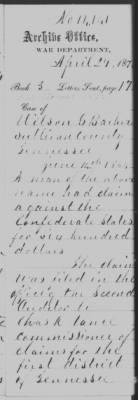 Archive Office,
WAR DEPARTMENT,
April 21, 187
Book 3 Letters Sent, page 17
Case of
Wilson C
Sullivan County
Tennessee
June
A man of the above
name had claim
against the
Confederate States
for six hundred
dollars
The claim
was filed in the
office of the second
Auditor
Chas R Vance
Commissioner of
claims for the
first District
of Tennessee